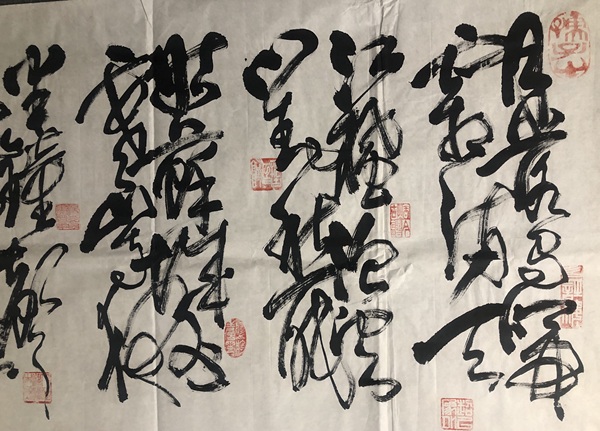 月落烏啼
霜滿天
江楓漁火
對愁眠
姑蘇城外
寒山寺夜
半鐘聲